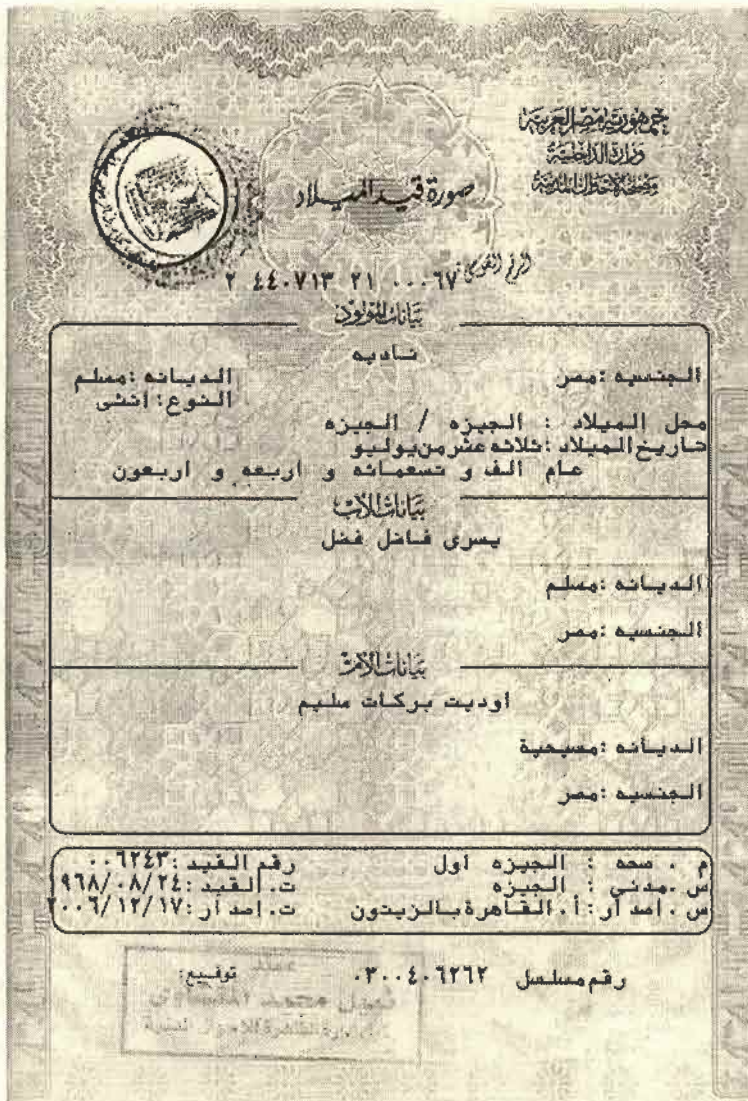 جمهورية مصر العربية
وزارة الداخلية
مصلحة الأحوال المدنية
صورة قيد الميلاد
الرقم القومى
٢ ٤٤٠٧١٣ ٢١ ٠٠٠٦٧
بيانات المولود
ناديه
الجنسيه :مصر الديانه :مسلم
النوع: انثى
محل الميلاد : الجيزه / الجيزه
تاريخ الميلاد :ثلاثه عشر من يوليو
عام الف و تسعمائه و اربعه و اربعون
بيانات الأب
يسرى فاضل فضل
الديانه :مسلم
الجنسيه :مصر
بيانات الأم
اوديت بركات سليم
الديانه :مسيحية
الجنسيه :مصر
م . صحه : الجيزه اول رقم القيد :٠٠٦٢٤٣
س .مدني : الجيزه ت. القيد :١٩٦٨/٠٨/٢٤
س . اصدار : أ. القاهرة بالزيتون ت. اصدار :٢٠٠٦/١٢/١٧
رقم مسلسل ٠٣٠٠٤٠٦٢٦٢ توقيع:
محمد